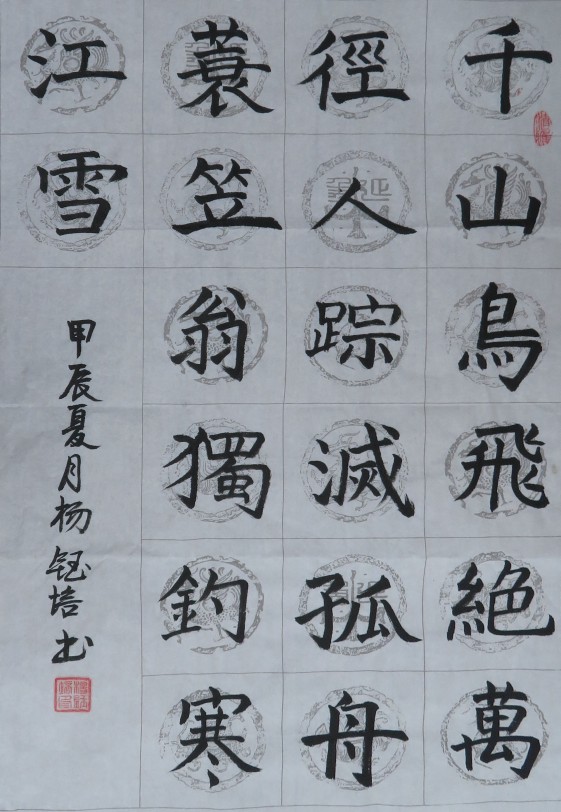 千山鳥飛絶萬
徑人踪滅孤舟
蓑笠翁獨釣寒
江雪
甲辰夏月杨钰培书